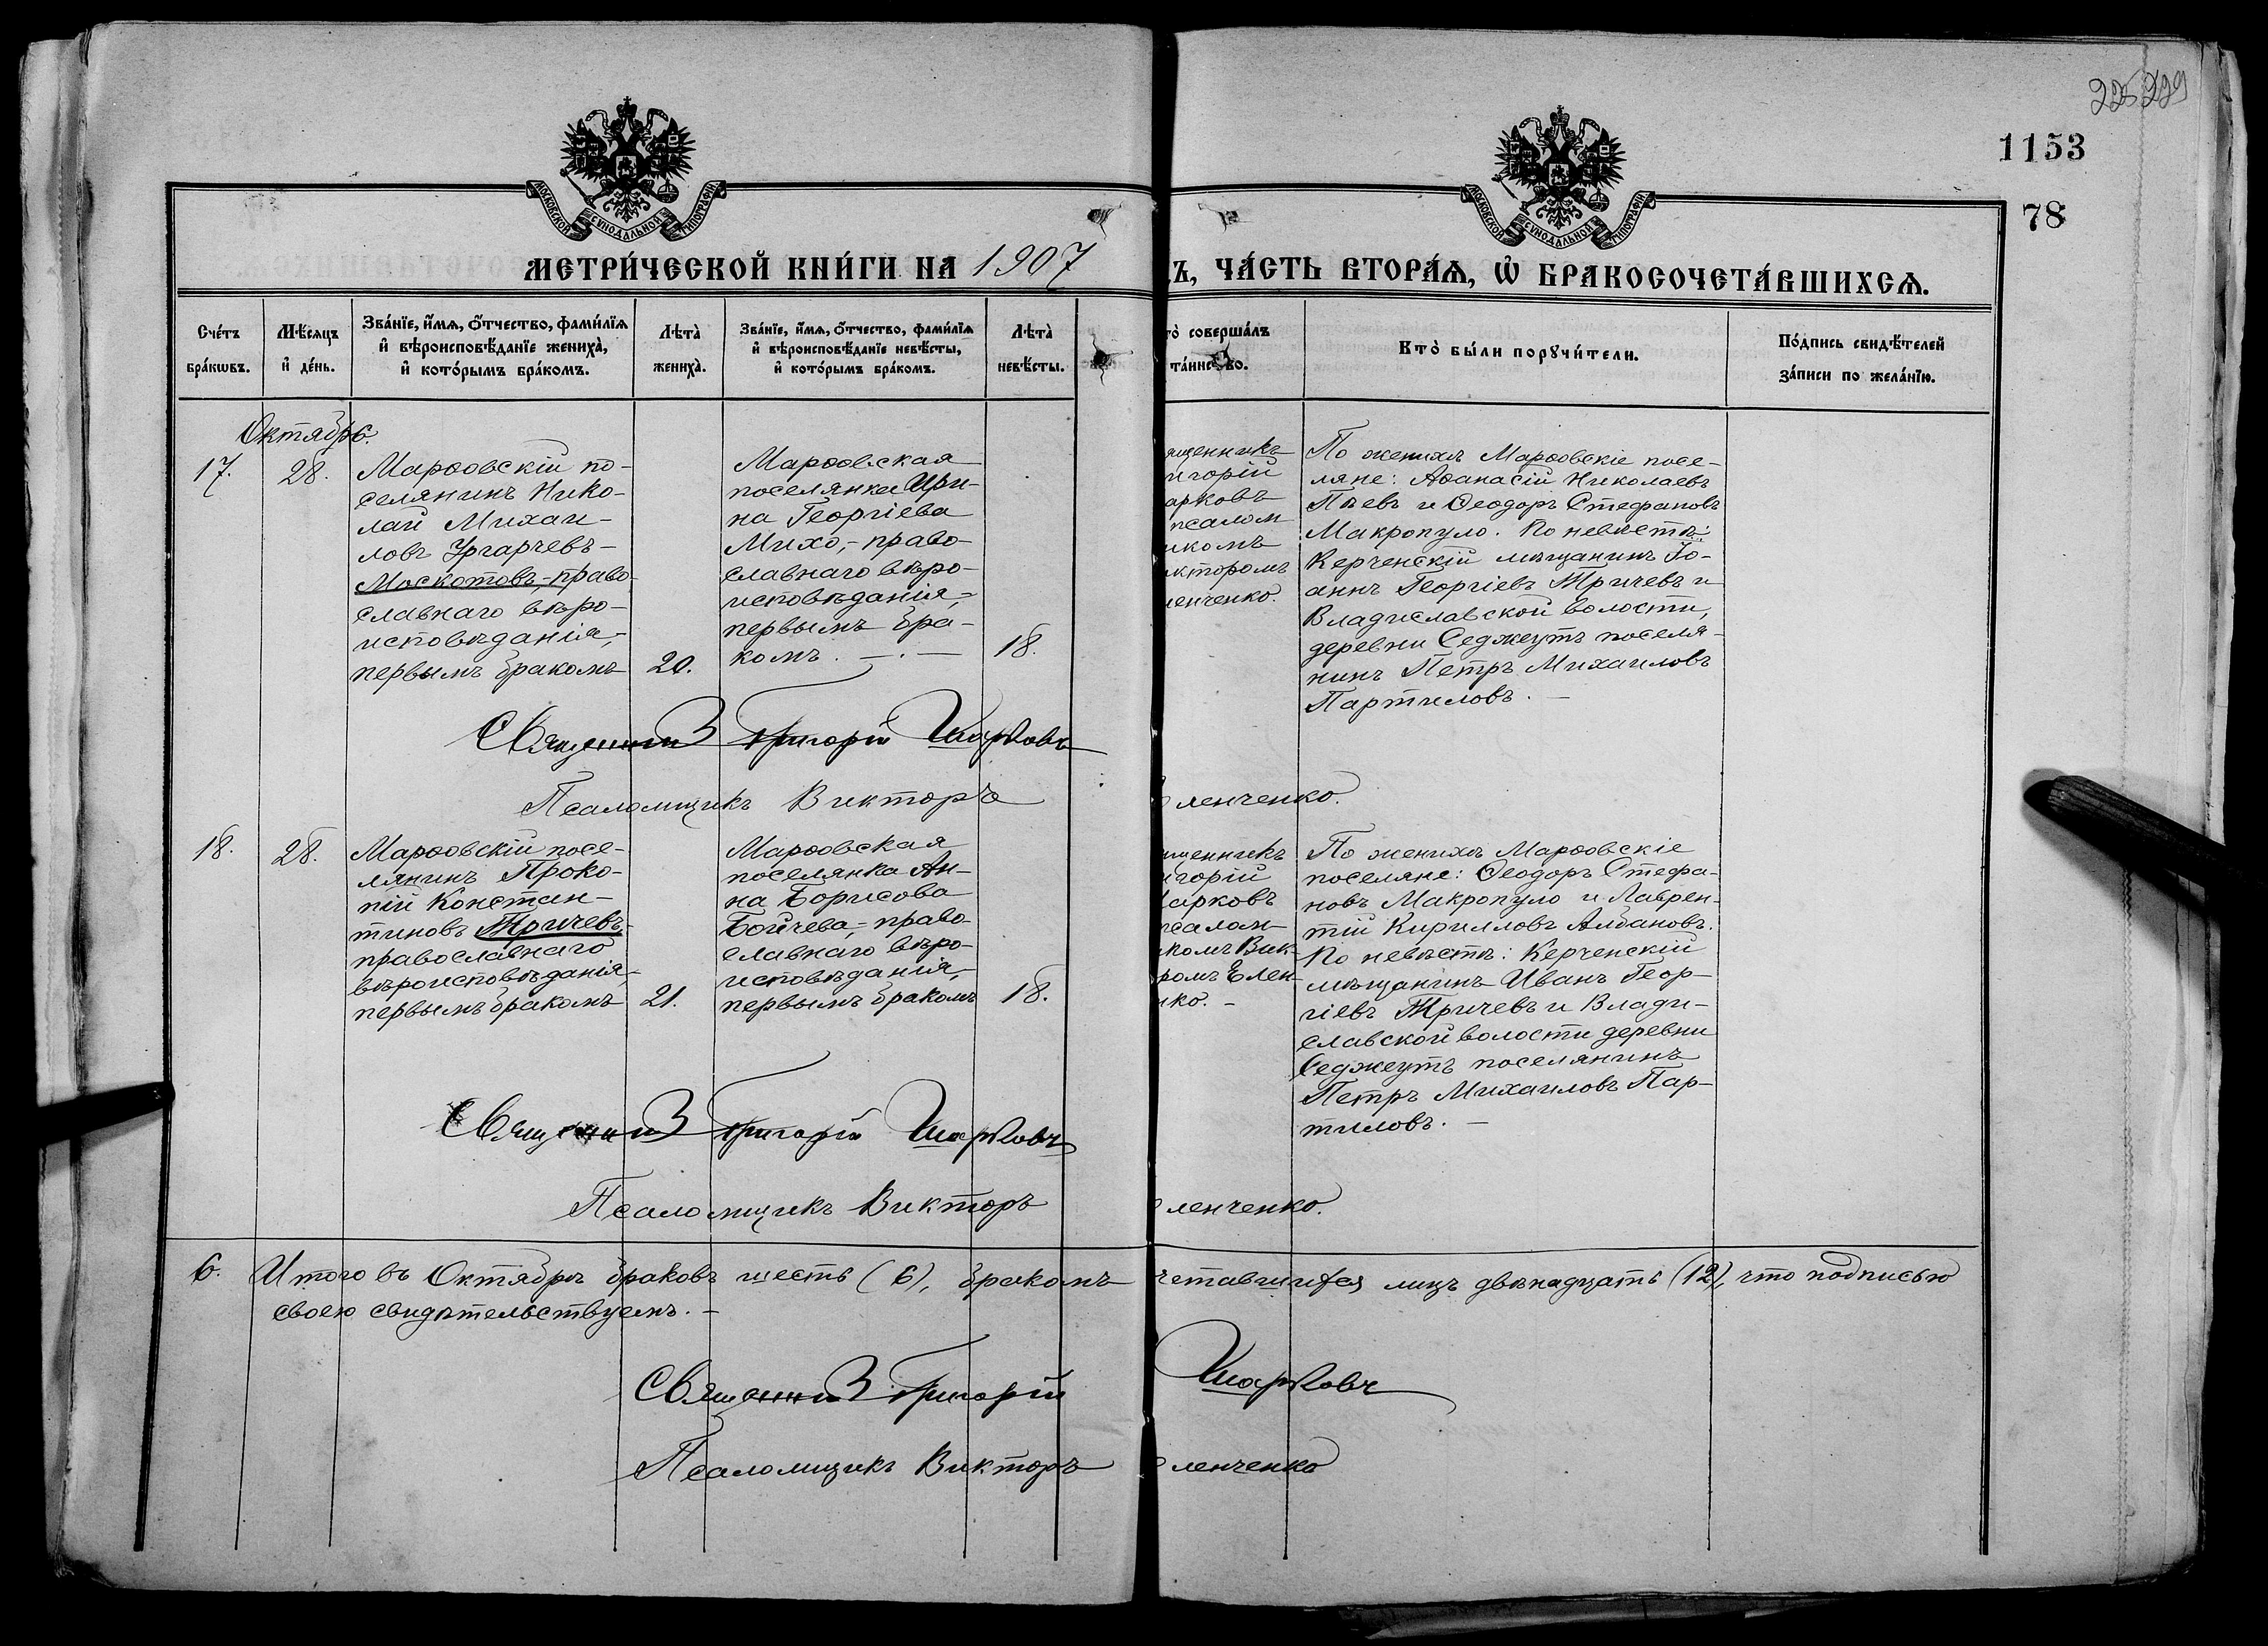 225 229
1153
78
МОСКОВСКОЙ СѴНОДАЛЬНОЙ ТИПОГРАФІИ
МОСКОВСКОЙ СѴНОДАЛЬНОЙ ТИПОГРАФІИ
МЕТРИ́ЧЕСКОЙ КНИ́ГИ НА 1907
Ъ, ЧА́СТЬ ВТОРА́Ѧ, Ѡ҆ БРАКОСОЧЕТА́ВШИХСѦ.
Сче́тъ
бра́кѡвъ.
Мѣ́сяцъ
и҆ де́нь.
Зва́нїе, и҆́мѧ, о҆́тчество, фами́лїѧ
и҆ вѣроисповѣ́данїе жениха̀,
и҆ кото́рымъ бра́комъ.
Лѣта̀
жениха̀.
Зва́нїе, и҆́мѧ, о҆́тчество, фами́лїѧ
и҆ вѣроисповѣ́данїе невѣ́сты,
и҆ кото́рымъ бра́комъ.
Лѣта̀
невѣ́сты.
то̀ соверша́лъ
та́инство.
Кто̀ бы́ли порꙋчи́тели.
По́дпись свидѣ́телей
за́писи по жела́нїю.
Октябрь.
17.
28.
Марѳовскій по-
селянинъ Нико-
лай Михаи-
ловъ Ургарчевъ-
Москотовъ,- право-
славнаго вѣро-
исповѣданія,-
первымъ бракомъ
20.
Марѳовская
поселянка Ири-
на Георгіева
Михо,- право-
славнаго вѣро-
исповѣданія,-
первымъ бра-
комъ. — . —
18.
ященникъ
игорій
арковъ
псалом
икомъ
икторомъ
ленченко.
По женихѣ Марѳовскіе посе-
ляне: Аѳанасій Николаевъ
Пѣевъ и Ѳеодоръ Стефановъ
Макропуло. По невѣстѣ:
Керченскій мѣщанинъ Іо-
аннъ Георгіевъ Тричевъ и
Владиславской волости,
деревни Седжеутъ поселя-
нинъ Петръ Михаиловъ
Партиловъ. —
Священникъ Григорій Шарковъ
Псаломщикъ Викторъ
ленченко.
18.
28.
Марѳовскій посе-
лянинъ Проко-
пій Констан-
тиновъ Тричевъ,-
православнаго
вѣроисповѣданія,-
первымъ бракомъ
21.
Марѳовская
поселянка Ан-
на Борисова
Бойчева,- право-
славнаго вѣро-
исповѣданія,-
первымъ бракомъ
18.
ященникъ
игорій
Шарковъ
псалом-
икомъ Вик-
ромъ Елен-
нко. -
По женихѣ Марѳовскіе
поселяне: Ѳеодоръ Стефа-
новъ Макропуло и Лаврен-
тій Кирилловъ Албановъ.
По невѣстѣ: Керченскій
мѣщанинъ Иванъ Геор-
гіевъ Тричевъ и Влади-
славской волости деревни
Седжеутъ поселянинъ
Петръ Михаиловъ Пар-
тиловъ. —
Священникъ Григорій Шарковъ
Псаломщикъ Викторъ
ленченко.
6. Итого въ Октябрѣ браковъ шесть (6), бракомъ четавшихся лицъ двѣнадцать (12), что подписью
своею свидѣтельствуемъ. —
Священникъ Григорій Шарковъ
Псаломщикъ Викторъ ленченко